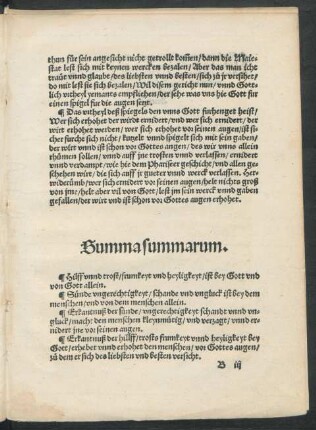 thun für sein angesicht nicht getrollt kom̄en/ dann die Maie-
stat lest sich mit keynen wercken bezalen/ Aber das man icht
traűe vnnd glaube/ des liebsten vnnd besten/ sich zů jr versihet/
do mit lest sie sich bezalen/ Wil disem geticht nun/ vnnd Gotts
lich vrtheyl yemants empfliehen/ der sehe was vns hie Gott für
einen spigel für die augen setzt.
¶ Das vrtheyl deß spiegels den vnns Gott fürhenget heist/
Wer sich erhohet der wirdt ernidert/ vnd wer sich ernidert/ der
wirt erhohet werden/ wer sich erhohet vor seinen augen/ ist si-
cher fürcht sich nicht/ kutzelt vnnd spigelt sich mit sein gaben/
der wirt vnnd ist schon vor Gottes augen/ des wir vnns allein
rhümen sollen/ vnnd auff jne trosten vnnd verlassen/ ernidert
vnnd verdampt/ wie hie dem Phariseer geschicht/ vnd allen ge-
schehen wirt/ die sich auff jr gueter vnnd werck verlassen. Her-
widerumb/ wer sich ernidert vor seinen augen/ helt nichts groß
von jme/ helt aber vil von Gott/ lest jm sein werck vnnd gaben
gefallen/ der wirt vnd ist schon vor Gottes augen erhohet.
Summa summarum.
¶ Hilff vnnd trost/ frumkeyt vnd heyligkeyt/ ist bey Gott vnd
von Gott allein.
¶ Sünde vngerechtigkeyt/ schande vnd vngluck ist bey dem
menschen/ vnd von dem menschen allein.
¶ Erkantnuß der sünde/ vngerechtigkeyt schandt vnnd vn-
gluck/ macht den menschen kleynmütig/ vnd verzagt/ vnnd er-
nidert jne vor seinen augen.
¶ Erkantnuß der hülff/ trosts frumkeyt vnnd heyligkeyt bey
Gott/ erhebet vnnd erhöhet den menschen/ vor Gottes augen/
zů dem er sich des liebsten vnd besten versicht.
B iij